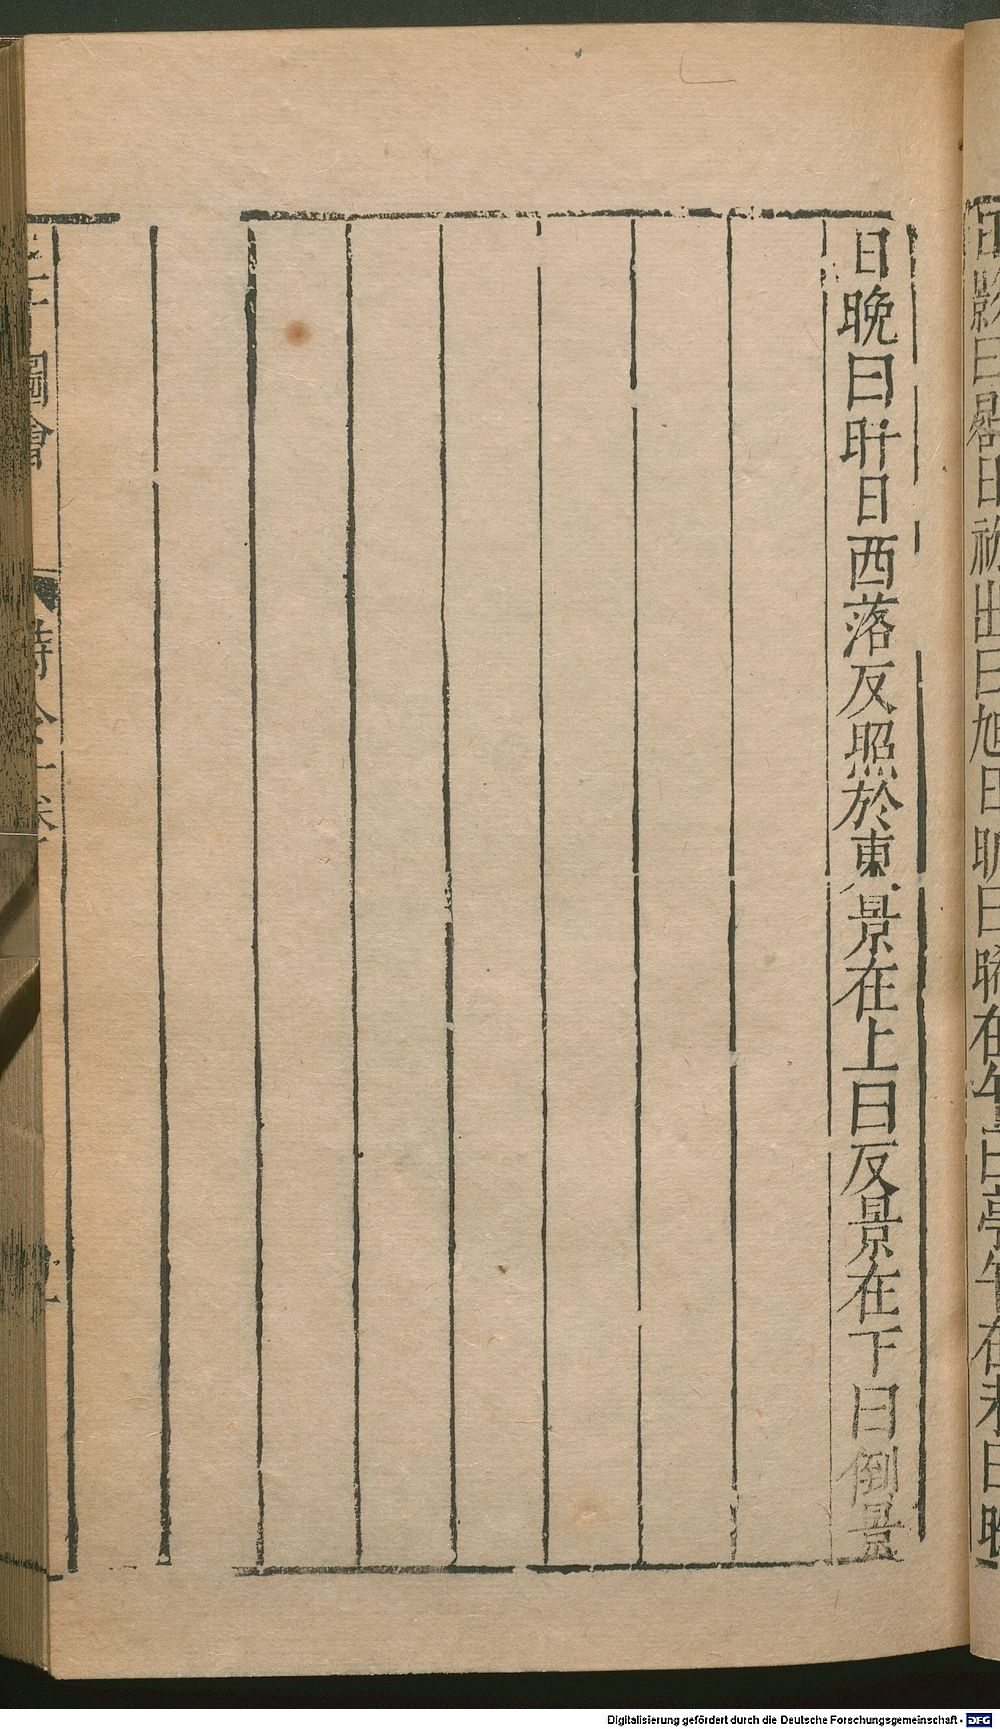 日影曰晷日初出曰旭日昕曰晞在午曰亭午在未曰昳
日晚曰旰日西落反照於東景在上曰反景在下曰倒景
三才圖會 時令一卷
Digitalisierung gefördert durch die Deutsche Forschungsgemeinschaft - DFG